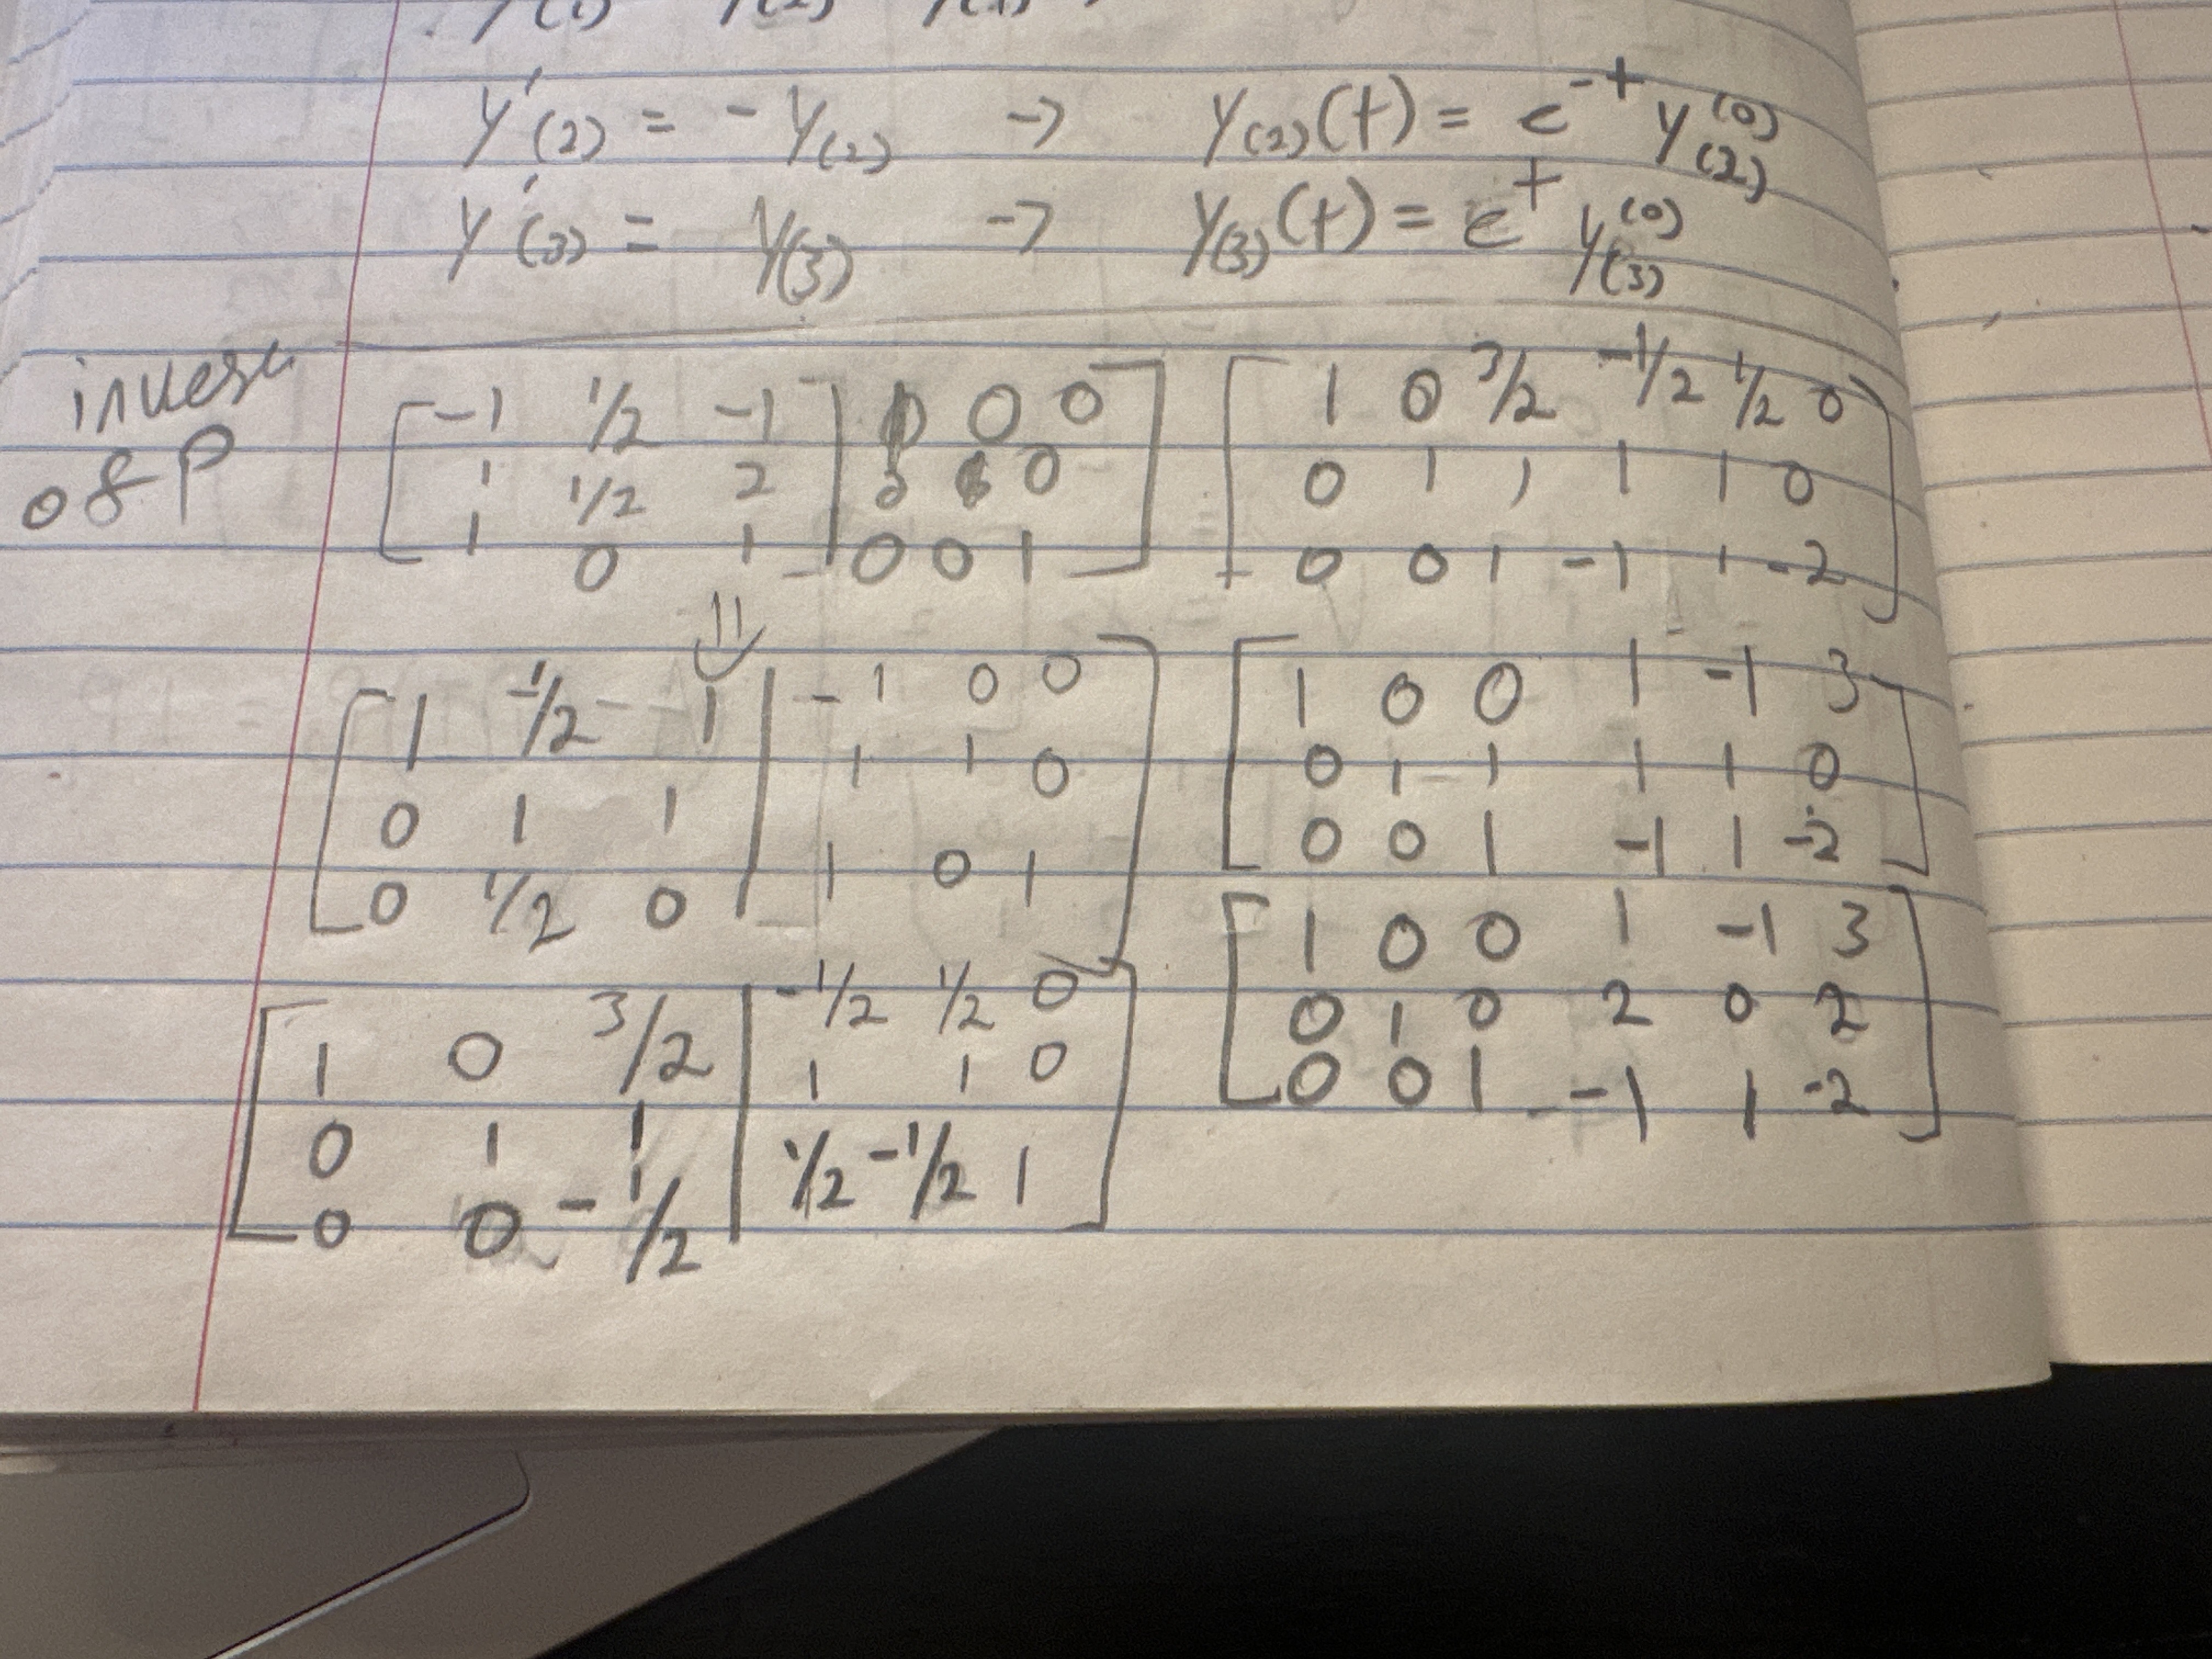 y'(2) = - y(2) -> y(2)(t) = e^-t y(2)^(0)
y'(3) = y(3) -> y(3)(t) = e^t y(3)^(0)
inverse
of P
[ -1 1/2 -1 | 1 0 0 ]
[ 1 1/2 2 | 0 1 0 ]
[ 1 0 1 | 0 0 1 ]
[ 1 -1/2 1 | -1 0 0 ]
[ 0 1 1 | 1 1 0 ]
[ 0 1/2 0 | 1 0 1 ]
[ 1 0 3/2 | -1/2 1/2 0 ]
[ 0 1 1 | 1 1 0 ]
[ 0 0 -1/2 | 1/2 -1/2 1 ]
[ 1 0 3/2 -1/2 1/2 0 ]
[ 0 1 1 1 1 0 ]
[ 0 0 1 -1 1 -2 ]
[ 1 0 0 1 -1 3 ]
[ 0 1 1 1 1 0 ]
[ 0 0 1 -1 1 -2 ]
[ 1 0 0 1 -1 3 ]
[ 0 1 0 2 0 2 ]
[ 0 0 1 -1 1 -2 ]